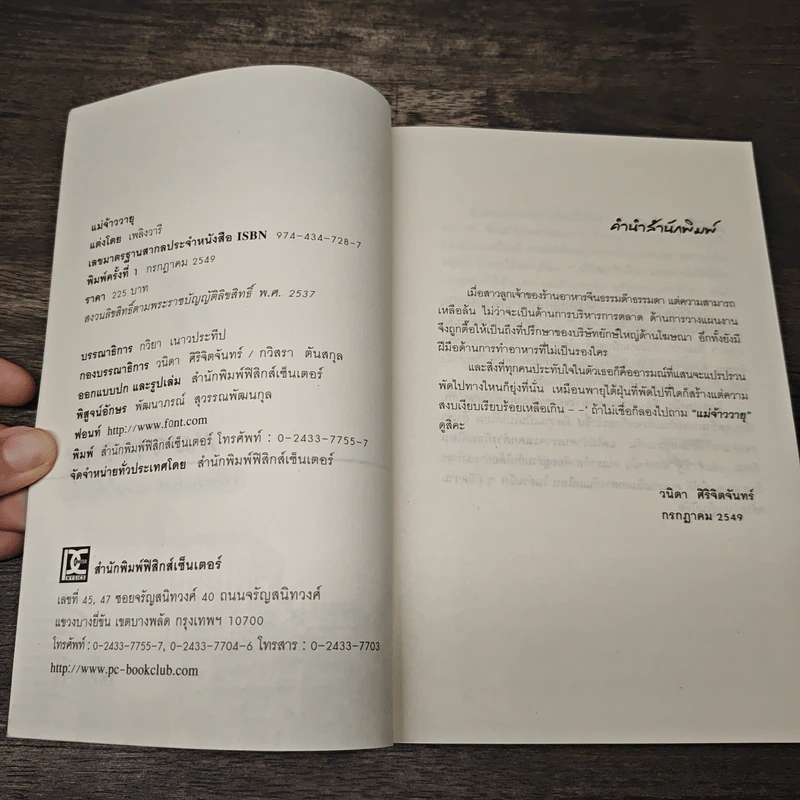 แม่จ้าววายุ
แต่งโดย เพลิงวารี
เลขมาตรฐานสากลประจำหนังสือ ISBN 974-434-728-7
พิมพ์ครั้งที่ 1 กรกฎาคม 2549
ราคา 225 บาท
สงวนลิขสิทธิ์ตามพระราชบัญญัติลิขสิทธิ์ พ.ศ. 2537
บรรณาธิการ กวิยา เนาวประทีป
กองบรรณาธิการ วนิดา ศิริจิตจันทร์ / กวิสรา ตันสกุล
ออกแบบปก และรูปเล่ม สำนักพิมพ์ฟิสิกส์เซ็นเตอร์
พิสูจน์อักษร พัฒนาภรณ์ สุวรรณพัฒนกุล
ฟอนท์ http://www.font.com
พิมพ์ สำนักพิมพ์ฟิสิกส์เซ็นเตอร์ โทรศัพท์ : 0-2433-7755-7
จัดจำหน่ายทั่วประเทศโดย สำนักพิมพ์ฟิสิกส์เซ็นเตอร์
สำนักพิมพ์ฟิสิกส์เซ็นเตอร์
เลขที่ 45, 47 ซอยจรัญสนิทวงศ์ 40 ถนนจรัญสนิทวงศ์
แขวงบางยี่ขัน เขตบางพลัด กรุงเทพฯ 10700
โทรศัพท์ : 0-2433-7755-7, 0-2433-7704-6 โทรสาร : 0-2433-7703
http://www.pc-bookclub.com
คำนำสำนักพิมพ์
เมื่อสาวลูกเจ้าของร้านอาหารจีนธรรมด๊าธรรมดา แต่ความสามารถ
เหลือล้น ไม่ว่าจะเป็นด้านการบริหารการตลาด ด้านการวางแผนงาน
จึงถูกตื๊อให้เป็นถึงที่ปรึกษาของบริษัทยักษ์ใหญ่ด้านโฆษณา อีกทั้งยังมี
ฝีมือด้านการทำอาหารที่ไม่เป็นรองใคร
และสิ่งที่ทุกคนประทับใจในตัวเธอก็คืออารมณ์ที่แสนจะแปรปรวน
พัดไปทางไหนก็ยุ่งที่นั่น เหมือนพายุไต้ฝุ่นที่พัดไปที่ใดก็สร้างแต่ความ
สงบเงียบเรียบร้อยเหลือเกิน - -' ถ้าไม่เชื่อก็ลองไปถาม “แม่จ้าววายุ”
ดูสิคะ
วนิดา ศิริจิตจันทร์
กรกฎาคม 2549